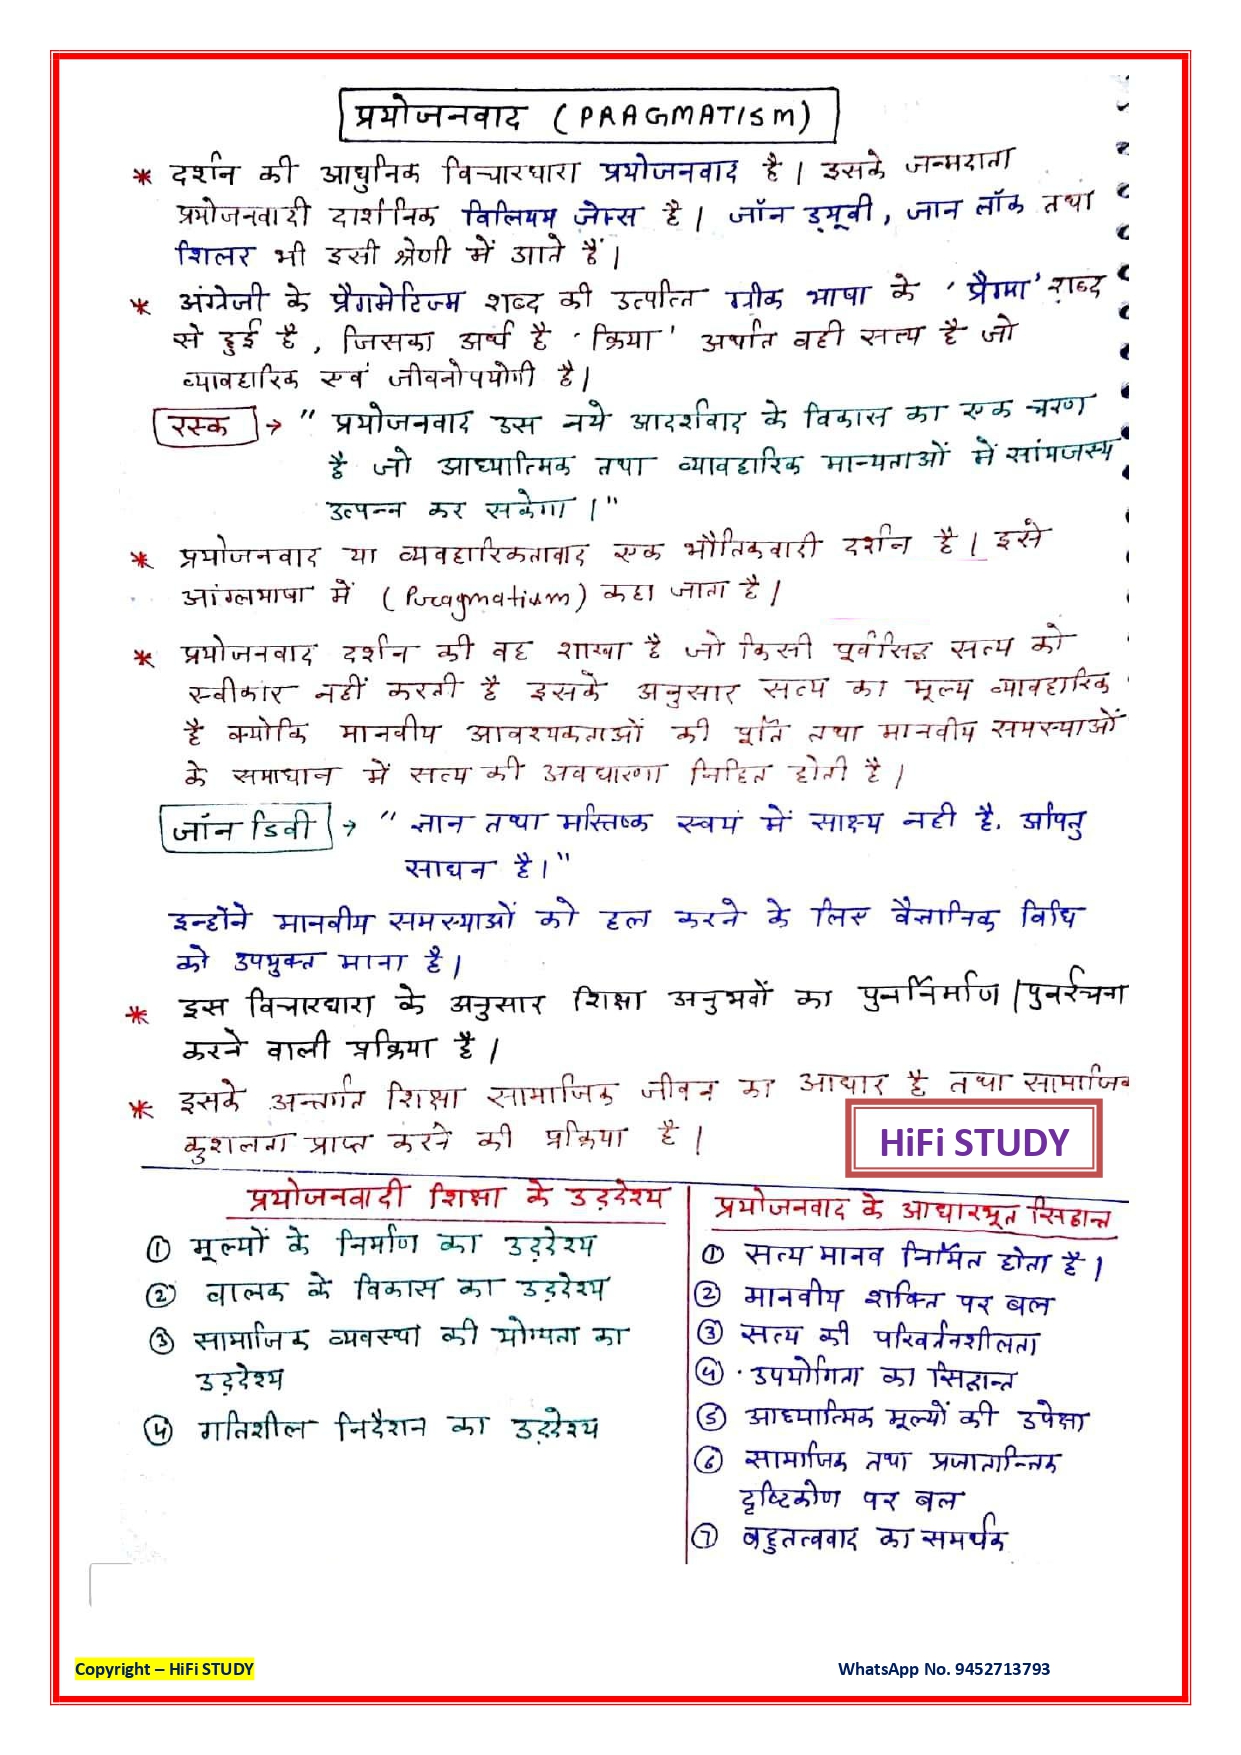 प्रयोजनवाद (PRAGMATISM)
* दर्शन की आधुनिक विचारधारा प्रयोजनवाद है। इसके जन्मदाता
प्रयोजनवादी दार्शनिक विलियम जेम्स है। जॉन ड्यूवी, जान लॉक तथा
शिलर भी इसी श्रेणी में आते हैं।
* अंग्रेजी के प्रैगमेटिज्म शब्द की उत्पत्ति ग्रीक भाषा के 'प्रैग्मा' शब्द
से हुई है, जिसका अर्थ है 'क्रिया' अर्थात वही सत्य है जो
व्यावहारिक एवं जीवनोपयोगी है।
रस्क → " प्रयोजनवाद उस नये आदर्शवाद के विकास का एक चरण
है जो आध्यात्मिक तथा व्यावहारिक मान्यताओं में सांमजस्य
उत्पन्न कर सकेगा।"
* प्रयोजनवाद या व्यवहारिकतावाद एक भौतिकवादी दर्शन है। इसे
आंग्लभाषा में (Pragmatium) कहा जाता है।
* प्रयोजनवाद दर्शन की वह शाखा है जो किसी पूर्वसिद्ध सत्य को
स्वीकार नहीं करती है इसके अनुसार सत्य का मूल्य व्यावहारिक
है क्योकि मानवीय आवश्यकताओं की पूर्ति तथा मानवीय समस्याओं
के समाधान में सत्य की अवधारणा निहित होती है।
जॉन डिवी → " ज्ञान तथा मस्तिष्क स्वयं में साक्ष्य नही है. अपितु
साधन है।"
इन्होंने मानवीय समस्याओं को हल करने के लिए वैज्ञानिक विधि
को उपयुक्त माना है।
* इस विचारधारा के अनुसार शिक्षा अनुभवों का पुनर्निर्माण/पुनर्रचना
करने वाली प्रक्रिया है।
* इसके अन्तर्गत शिक्षा सामाजिक जीवन का आधार है तथा सामाजिक
कुशलता प्राप्त करने की प्रक्रिया है।
HiFi STUDY
प्रयोजनवादी शिक्षा के उद्देश्य
① मूल्यों के निर्माण का उद्देश्य
② बालक के विकास का उद्देश्य
③ सामाजिक व्यवस्था की योग्यता का
उद्देश्य
④ गतिशील निर्देशन का उद्देश्य
प्रयोजनवाद के आधारभूत सिद्धान्त
① सत्य मानव निर्मित होता है।
② मानवीय शक्ति पर बल
③ सत्य की परिवर्तनशीलता
④ उपयोगिता का सिद्धान्त
⑤ आध्यात्मिक मूल्यों की उपेक्षा
⑥ सामाजिक तथा प्रजातान्त्रिक
दृष्टिकोण पर बल
⑦ बहुतत्ववाद का समर्थक
Copyright – HiFi STUDY
WhatsApp No. 9452713793